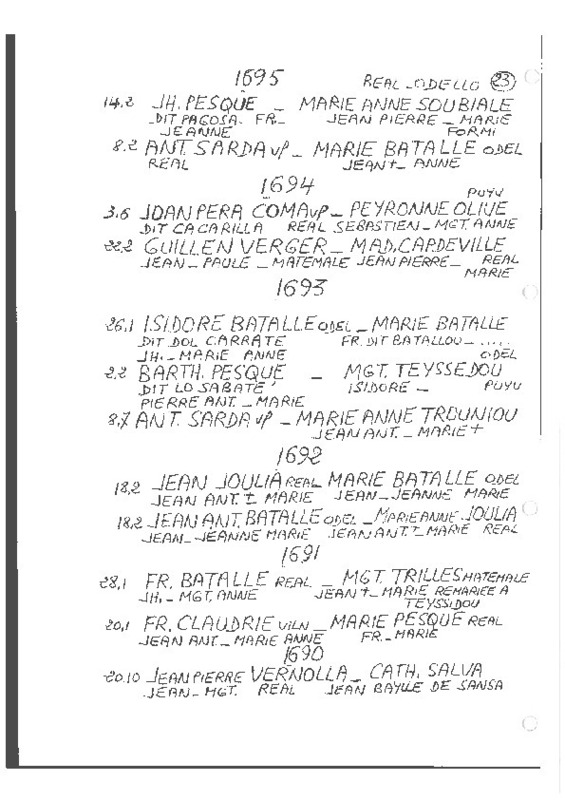 1695 REAL - ODELLO 23
14.2 JH. PESQUE _ MARIE ANNE SOUBIALE
_DIT PAGOSA. FR_ JEAN PIERRE _ MARIE
JEANNE FORMI
8.2 ANT SARDA vP_ MARIE BATALLE ODEL
REAL JEAN+_ ANNE
1694 PUYV
3.6 JOAN PERA COMA vP_ PEYRONNE OLIVE
DIT CACARILLA REAL SEBASTIEN _ MGT. ANNE
22.2 GUILLEN VERGER _ MAD. CAPDEVILLE
JEAN _ PAULE _ MATEMALE JEAN PIERRE _ REAL
MARIE
1693
26.1 ISIDORE BATALLE ODEL _ MARIE BATALLE
DIT DOL CARRATE FR. DIT BATALLOU _ .....
JH. _ MARIE ANNE ODEL
2.2 BARTH. PESQUE _ MGT. TEYSSEDOU
DIT LO SABATE' ISIDORE _ PUYV
PIERRE ANT. _ MARIE
8.7 ANT. SARDA vP _ MARIE ANNE TROUNIOU
JEAN ANT. _ MARIE +
1692
18.2 JEAN JOULIA REAL MARIE BATALLE ODEL
JEAN ANT. + MARIE JEAN _ JEANNE MARIE
18.2 JEAN ANT. BATALLE ODEL _ MARIE ANNE JOULIA
JEAN _ JEANNE MARIE JEAN ANT. + MARIE REAL
1691
28.1 FR. BATALLE REAL _ MGT. TRILLES MATEMALE
JH. _ MGT. ANNE JEAN + _ MARIE REMARIEE A
TEYSSIDOU
20.1 FR. CLAUDRIE VILN _ MARIE PESQUE REAL
JEAN ANT _ MARIE ANNE FR. _ MARIE
1690
20.10 JEAN PIERRE VERNOLLA _ CATH. SALVA
JEAN _ MGT. REAL JEAN BAYLLE DE SANSA